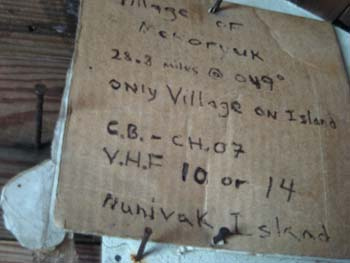 Village OF
Mekoryuk
28.8 miles @ 049°
only Village on Island
C.B. - CH.07
V.H.F 10 or 14
Nunivak Island